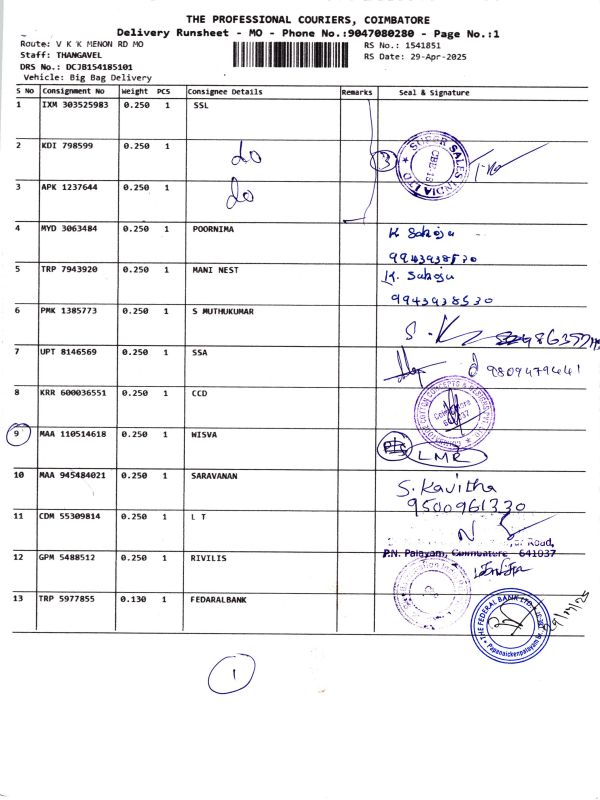 THE PROFESSIONAL COURIERS, COIMBATORE
Delivery Runsheet - MO - Phone No.:9047080280 - Page No.:1
Route: V K K MENON RD MO
RS No.: 1541851
Staff: THANGAVEL
RS Date: 29-Apr-2025
DRS No.: DCJB154185101
Vehicle: Big Bag Delivery
S No Consignment No Weight PCS Consignee Details Remarks Seal & Signature
1 IXM 303525983 0.250 1 SSL
2 KDI 798599 0.250 1 do
3 SUPER SALES INDIA LTD CBE-18
3 APK 1237644 0.250 1 do
4 MYD 3063484 0.250 1 POORNIMA
9943938530
5 TRP 7943920 0.250 1 MANI NEST
9943938530
6 PMK 1385773 0.250 1 S MUTHUKUMAR
7 UPT 8146569 0.250 1 SSA
9809479441
8 KRR 600036551 0.250 1 CCD
9 MAA 110514618 0.250 1 WISVA
LMR
10 MAA 945484021 0.250 1 SARAVANAN S. Kavitha
9500961330
11 CDM 55309814 0.250 1 L T
Road,
P.N. Palayam, Coimbatore 641037
12 GPM 5488512 0.250 1 RIVILIS
13 TRP 5977855 0.130 1 FEDARALBANK
THE FEDERAL BANK LTD.
Papanaickenpalayam Br.
1